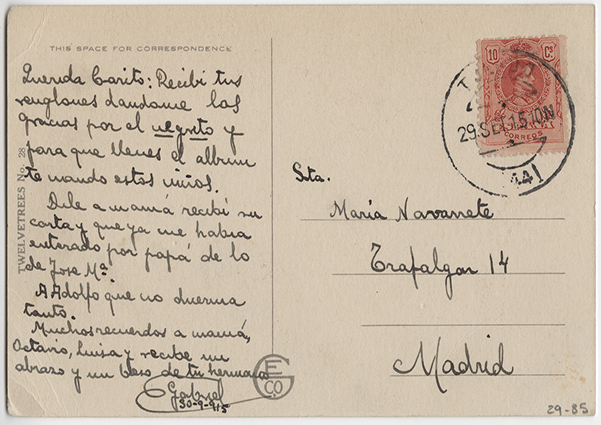 THIS SPACE FOR CORRESPONDENCE
Querida Carito: Recibi tus
renglones dandome las
gracias por el negrito y
para que llenes el album
te mando estos niños.
Dile a mamá recibí su
carta y que ya me habia
enterado por papá de lo
de Jose Mª.
A Adolfo que no duerma
tanto.
Muchos recuerdos a mamá,
Octavio, Luisa y recibe un
abrazo y un beso de tu hermano
Gabriel
30-9-915
TWELVETREES No. 28
10 Cs
CORREOS
29.SEP.15.10N
(44)
Srta.
María Navarrete
Trafalgar 14
Madrid
E
G
Co.
29-85